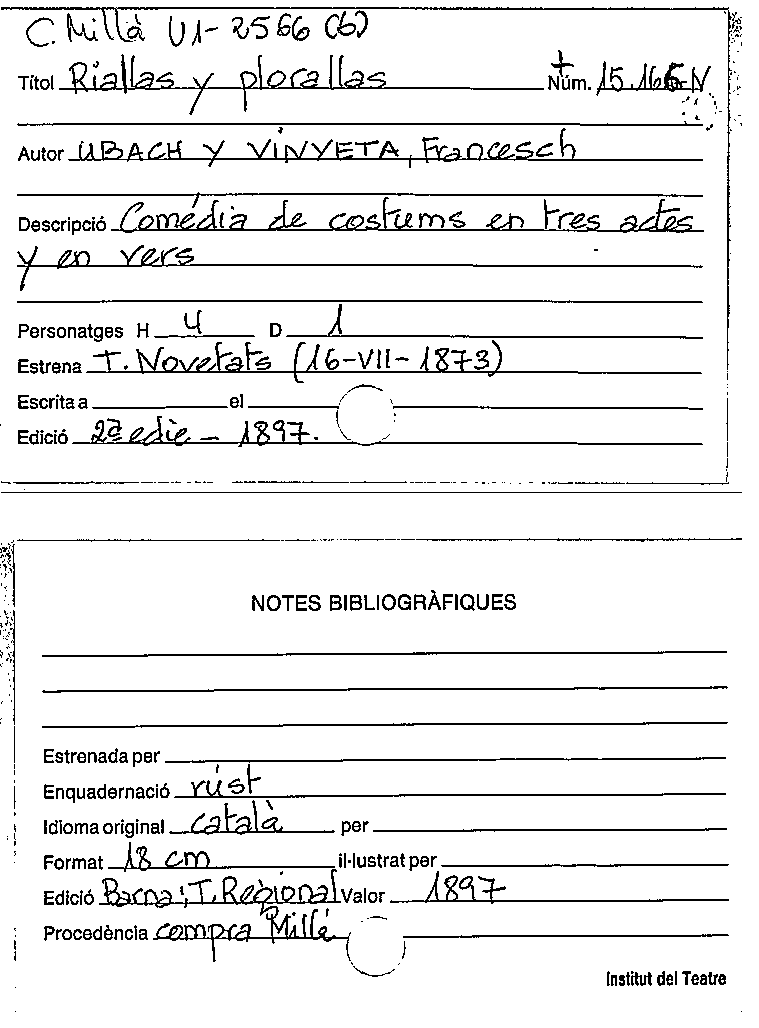 C. Millà U1-2566 (6)
Títol Riallas y plorallas Núm. 15.166-N
Autor UBACH Y VINYETA, Francesch
Descripció Comédia de costums en tres actes
y en vers
Personatges H 4 D 1
Estrena T. Novetats (16-VII-1873)
Escrita a el
Edició 2ª edic - 1897.
NOTES BIBLIOGRÀFIQUES
Estrenada per
Enquadernació rúst
Idioma original català per
Format 18 cm il·lustrat per
Edició Barna; T. Regional Valor 1897
Procedència compra Millá
Institut del Teatre